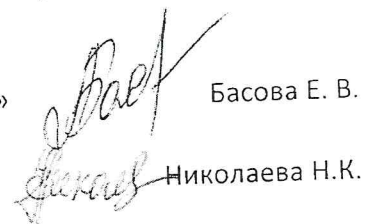 » Басова Е. В.
Николаева Н.К.